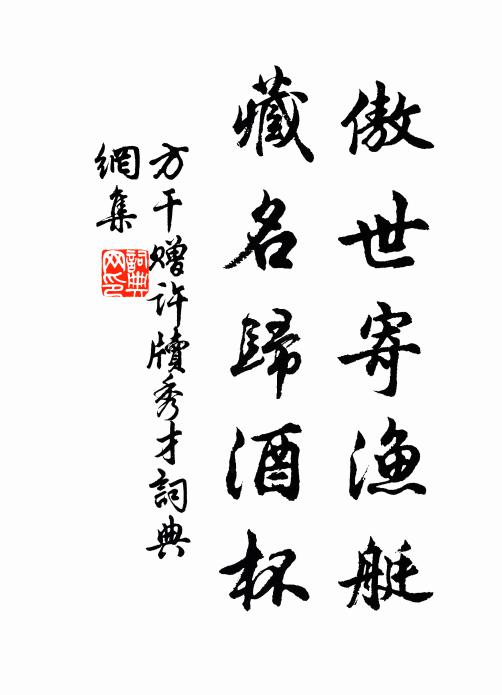 傲世寄漁艇
藏名歸酒杯
方干赠許牘秀才詞典
網集
詞典
网印